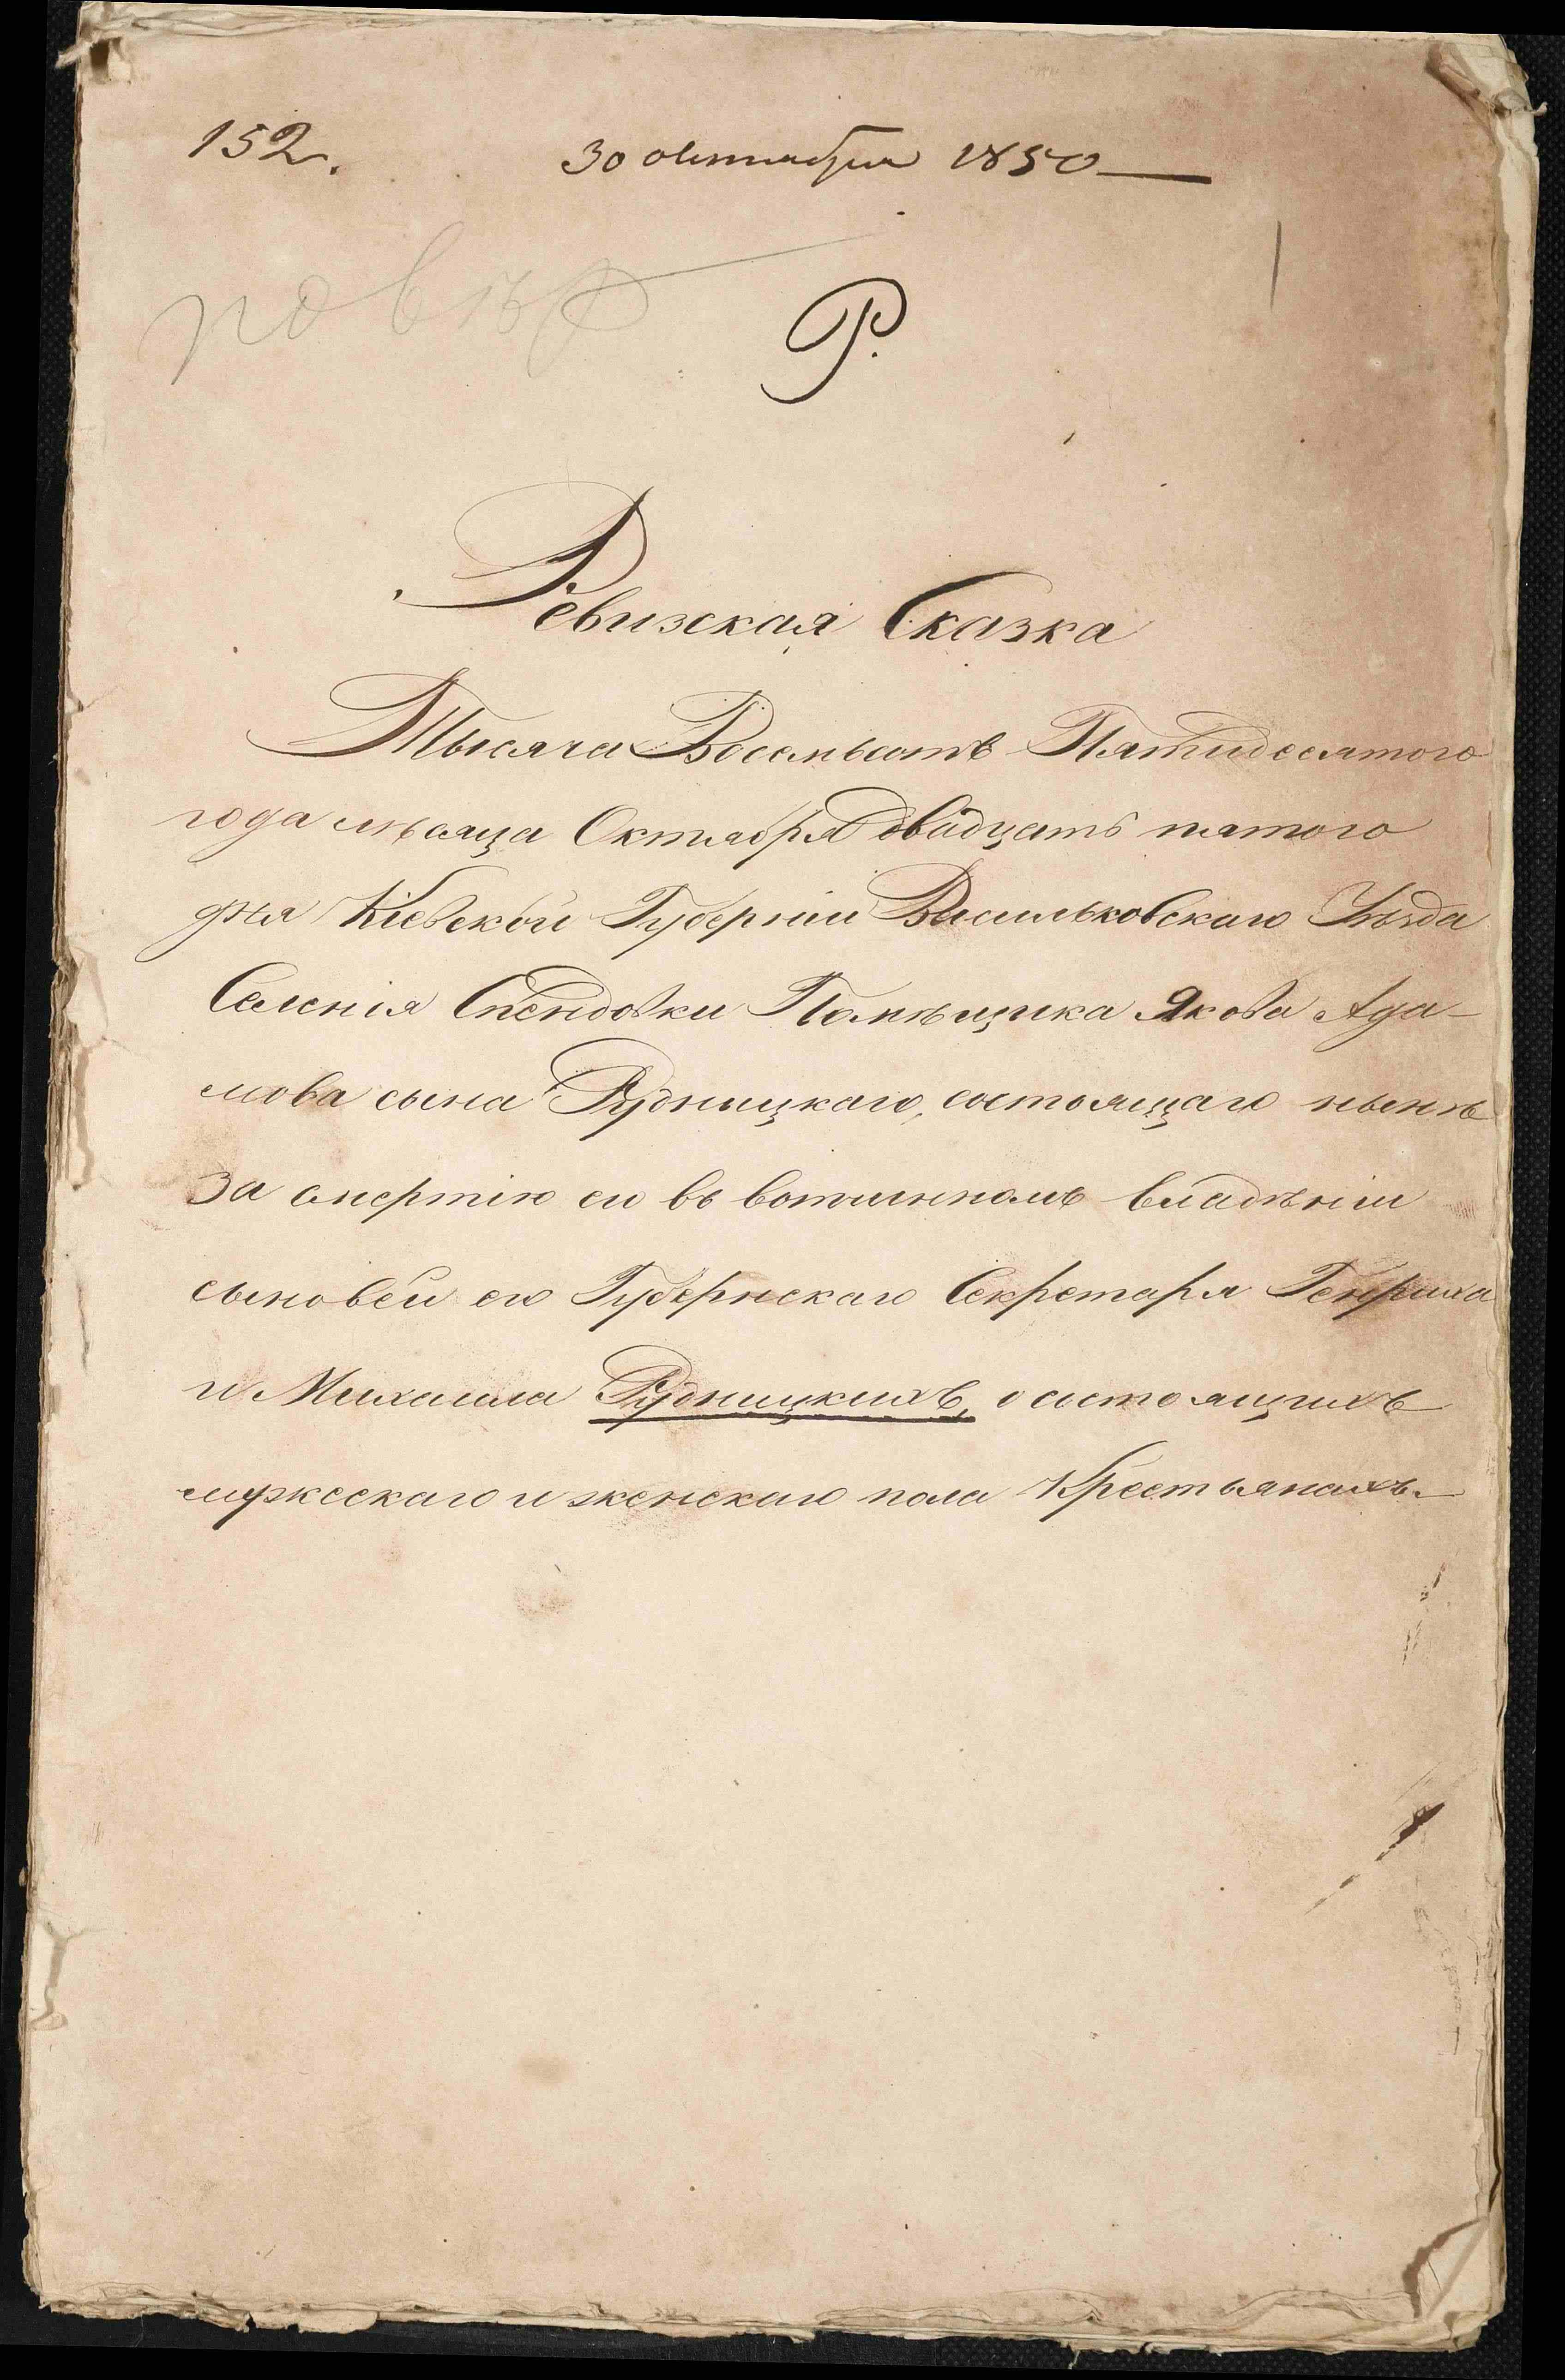 152. 30 октября 1850
повѣр
Р.
Ревизская Сказка
Тысяча Восемьсотъ Пятидесятого
года мѣсяца Октября двадцать пятого
дня Кіевской Губерніи Васильковскаго Уѣзда
Селенія Спендовки Помѣщика Якова Ада-
мова сына Рудницкаго, состоящаго нынѣ
за смертію его въ вотчинномъ владѣніи
сыновей его Губернскаго Секретаря Генриха
и Михаила Рудницкихъ, о состоящихъ
мужескаго и женскаго пола Крестьянахъ.